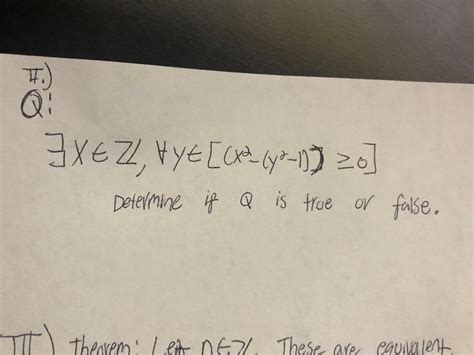 II.)
Q:
∃x∈ℤ, ∀y∈[(x²-(y²-1)) ≥0]
Determine if Q is true or false.
III) Theorem: Let n∈ℤ. These are equivalent